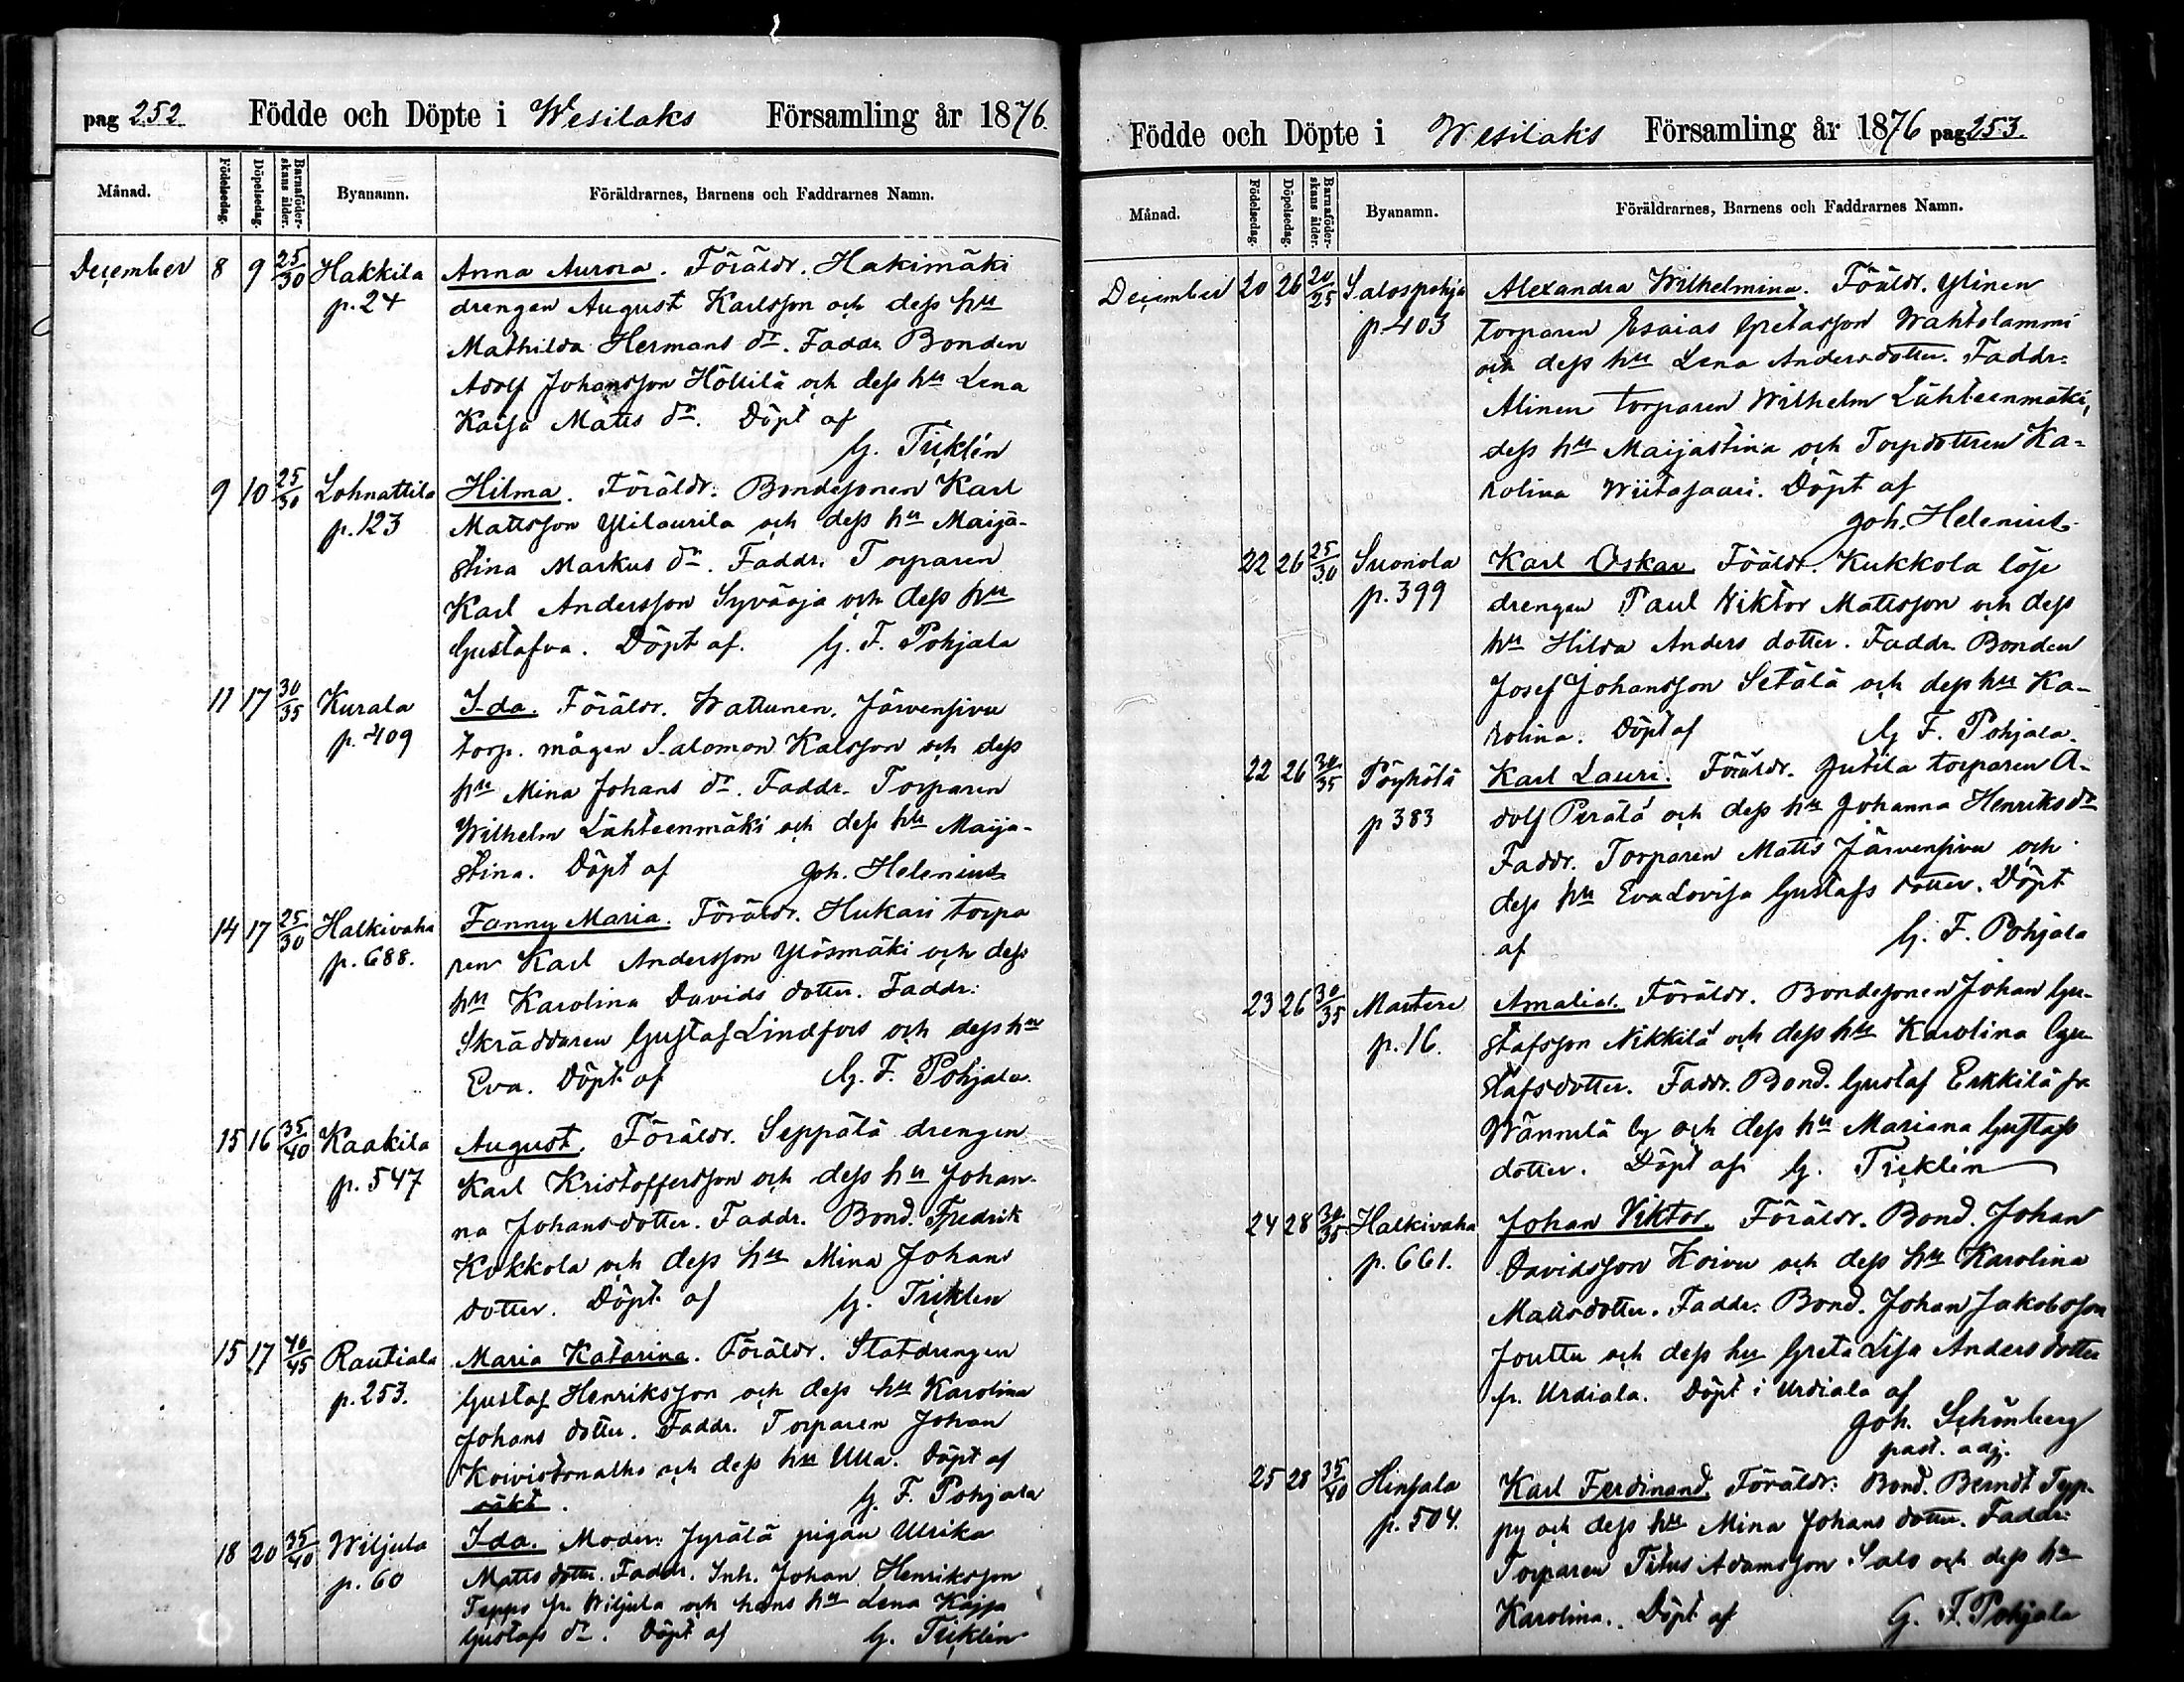 pag 252. Födde och Döpte i Wesilaks Församling år 1876.
Månad. Födelsedag. Döpelsedag. Barnaföderskans ålder. Byanamn. Föräldrarnes, Barnens och Faddrarnes Namn.
December 8 9 25/30 Hakkila Anna Aurora. Föräldr. Hakimäki
p. 24 drengen August Karlsson och dess hu
Mathilda Hermans dr. Faddr. Bonden
Adolf Johansson Höltilä och dess hu Lena
Kaisa Matts dr. Döpt af
G. Ticklén
9 10 25/30 Lohnattila Hilma. Föräldr. Bondesonen Karl
p. 123 Mattsson Ylilaurila och dess hu Maija-
stina Markus dr. Faddr. Torparen
Karl Andersson Syväoja och dess hu
Gustafva. Döpt af. G. F. Pohjala
11 17 30/35 Kurala Ida. Föräldr. Wattunen, Järvensivu
p. 409 torp. mågen Salomon Kalsson och dess
hu Mina Johans dr. Faddr. Torparen
Wilhelm Lähteenmäki och dess hu Maija-
stina. Döpt af Joh. Helenius
14 17 25/30 Halkivaha Fanny Maria. Föräldr. Hukari torpa
p. 688. ren Karl Andersson Ylösmäki och dess
hu Karolina Davids dotter. Faddr:
Skräddaren Gustaf Lindfors och dess hu
Eva. Döpt af G. F. Pohjala.
15 16 35/40 Kaakila August. Föräldr. Seppälä drengen
p. 547 Karl Kristoffersson och dess hu Johan-
na Johansdotter. Faddr. Bond. Fredrik
Kokkola och dess hu Mina Johans
dotter. Döpt af G. Ticklen
15 17 40/45 Rautiala Maria Katarina. Föräldr. Statdrengen
p. 253. Gustaf Henriksson och dess hu Karolina
Johans dotter. Faddr. Torparen Johan
och dess hu Ulla. Döpt af
G. F. Pohjala
18 20 35/40 Wiljula Ida. Moder: Jyrälä pigan Ulrika
p. 60 Matts dotter. Faddr. Inh. Johan Henriksson
Teppo fr. Wiljula och hans hu Lena Kajsa
Gustafs dr. Döpt af G. Ticklén
Födde och Döpte i Wesilaks Församling år 1876 pag 253.
Månad. Födelsedag. Döpelsedag. Barnaföderskans ålder. Byanamn. Föräldrarnes, Barnens och Faddrarnes Namn.
December 20 26 20/25 Salospohja Alexandra Wilhelmina. Föräldr. Ylinen
p. 403 torparen Esaias Gretasson Wahtolammi
och dess hu Lena Andersdotter. Faddr:
Alinen torparen Wilhelm Lähteenmäki,
dess hu Maijastina och Torpdottren Ka-
rolina Wiitasaari. Döpt af
Joh. Helenius
22 26 25/30 Suonola Karl Oskar. Föräldr. Kukkola löse
p. 399 drengen Paul Viktor Mattsson och dess
hu Hilda Anders dotter. Faddr. Bonden
Josef Johansson Setälä och dess hu Ka-
rolina. Döpt af G. F. Pohjala.
22 26 30/35 Pöyhölä Karl Lauri. Föräldr. Jutila torparen A-
p 383 dolf Perälä och dess hu Johanna Henriksdr
Faddr. Torparen Matts Järvensivu och
dess hu Eva Lovisa Gustafs dotter. Döpt
af G. F. Pohjala
23 26 30/35 Mantere Amalia. Föräldr. Bondesonen Johan Gu-
p. 16. stafsson Nikkilä och dess hu Karolina Gu-
stafsdotter. Faddr. Bond. Gustaf Erkkilä fr
Wännilä by och dess hu Mariana Gustafs
dotter. Döpt af G. Ticklén
24 28 30/35 Halkivaha Johan Viktor. Föräldr. Bond. Johan
p. 661. Davidsson Koivu och dess hu Karolina
Mattsdotter. Faddr. Bond. Johan Jakobsson
Jouttu och dess hu Greta Lisa Anders dotter
fr. Urdiala. Döpt i Urdiala af
Joh. Schönberg
past. adj.
25 28 35/40 Hinsala Karl Ferdinand. Föräldr: Bond. Berndt Typ-
p. 504. py och dess hu Mina Johans dotter. Faddr:
Torparen Titus Adamsson Salo och dess hu
Karolina. Döpt af G. F. Pohjala